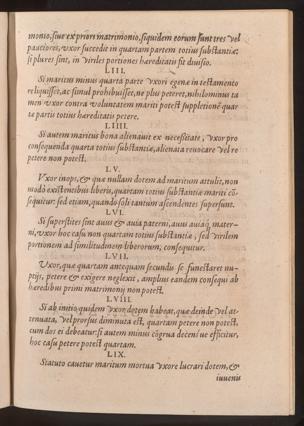 monio, siue ex priori matrimonio, siquidem eorum sunt tres vel
pauciores, vxor succedit in quartam partem totius substantiæ:
si plures sint, in viriles portiones hæreditatis fit diuisio.
LIII.
Si maritus minus quarta parte vxori egenæ in testamento
reliquisset, ac simul prohibuisset, ne plus peteret, nihilominus ta
men vxor contra voluntatem mariti potest suppletionē quar
tæ partis totius hæreditatis petere.
LIIII.
Si autem maritus bona alienauit ex necessitate, vxor pro
consequenda quarta totius substantiæ, alienata reuocare vel re
petere non potest.
LV.
Vxor inops, & quæ nullam dotem ad maritum attulit, non
modò existentibus liberis, quartam totius substantiæ mariti cō-
sequitur: sed etiam, quando soli tantum ascendentes supersunt.
LVI.
Si superstites sint auus & auia paterni, auus auiaq́; mater-
ni, vxor hoc casu non quartam totius substantiæ, sed virilem
portionem ad similitudinem liberorum, consequitur.
LVII.
Vxor, quæ quartam antequam secundis se funestaret nu-
ptijs, petere & exigere neglexit, amplius eandem consequi ab
hæredibus primi matrimonij non potest.
LVIII.
Si ab initio quidem vxor dotem habeat, quæ deinde vel at-
tenuata, vel prorsus diminuta est, quartam petere non potest,
cum dos ei debeatur: si autem minus cōgrua decēni ve efficitur,
hoc casu petere potest quartam.
LIX.
Statuto cauetur maritum mortua vxore lucrari dotem, &
iuuenis